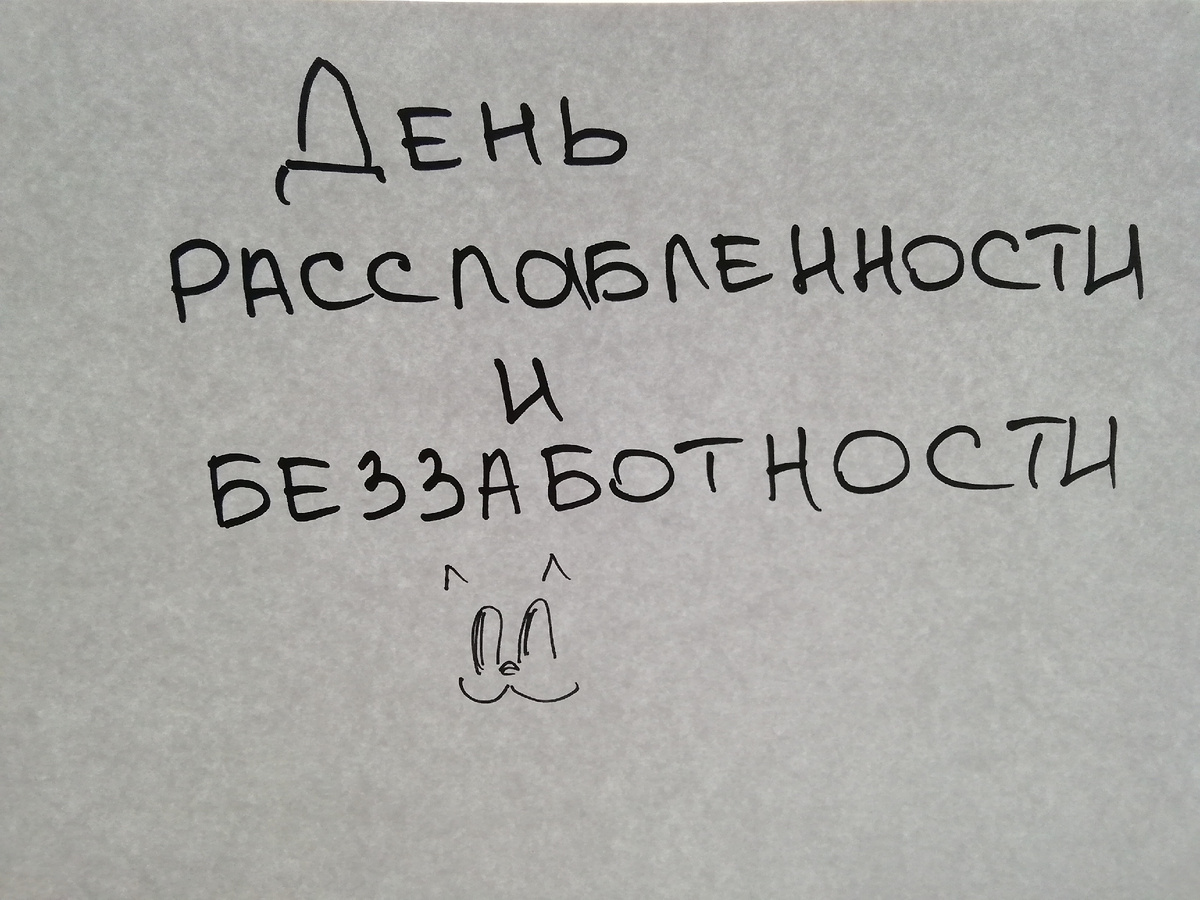 День
РАССЛАБЛЕННОСТИ
И
БЕЗЗАБОТНОСТИ